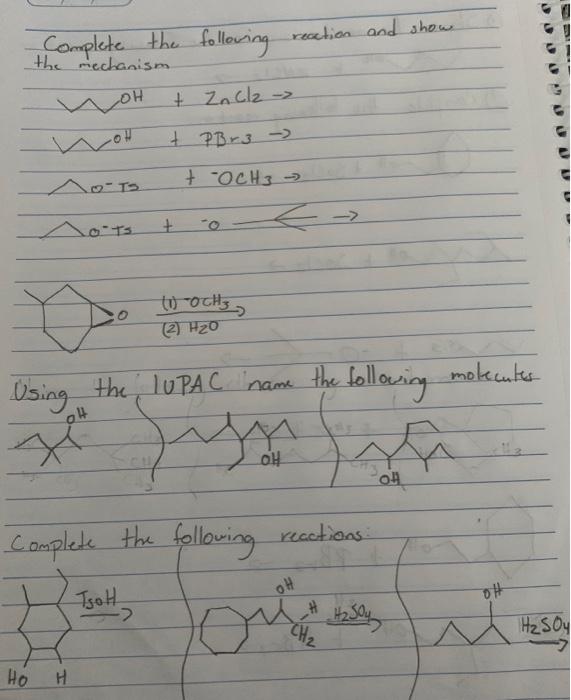 Complete the following reaction and show
the mechanism
OH + ZnCl2 →
OH + PBr3 →
O-Ts + -OCH3 →
O-Ts + -O →
O (1) -OCH3
(2) H2O
Using the IUPAC name the following molecules
OH
OH
OH
Complete the following reactions:
TsoH
HO H
OH
H
CH2
H2SO4
OH
H2SO4